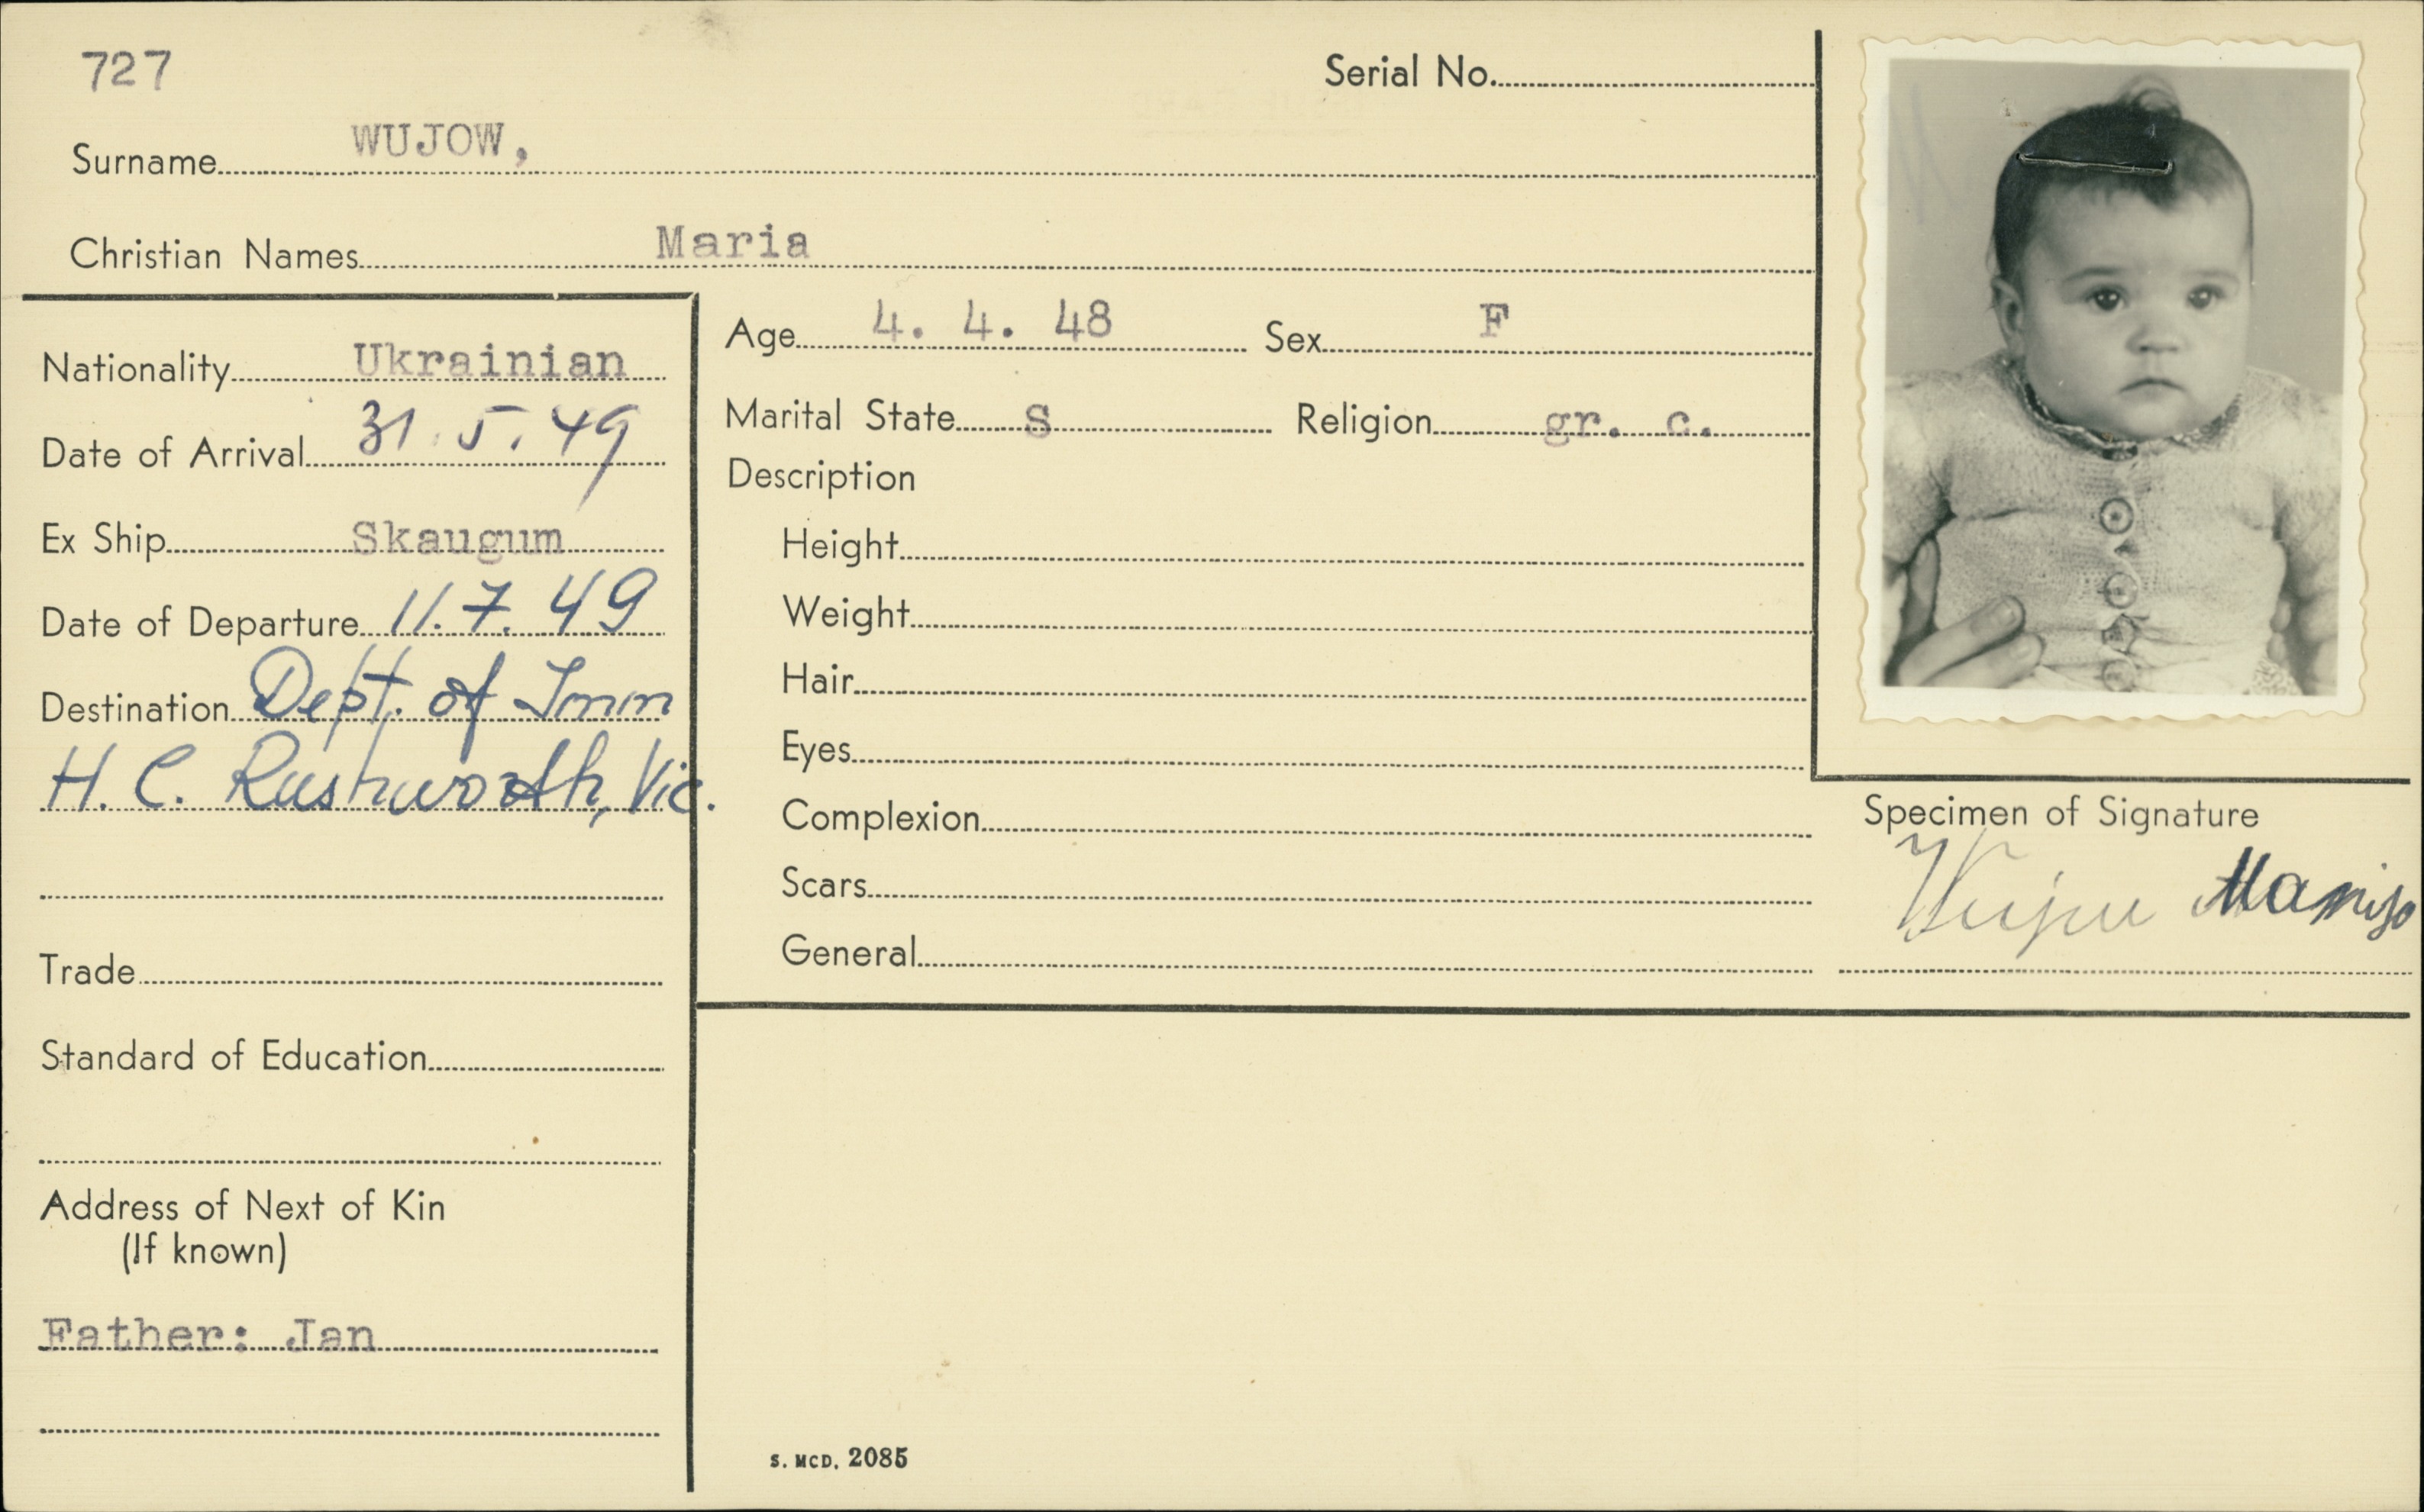 727
Serial No.
Surname WUJOW,
Christian Names Maria
Nationality Ukrainian
Date of Arrival 31.5.49
Ex Ship Skaugum
Date of Departure 11.7.49
Destination Dept. of Imm
H. C. Rushworth, Vic.
Trade
Standard of Education
Address of Next of Kin
(If known)
Father: Jan
Age 4. 4. 48 Sex F
Marital State S Religion gr. c.
Description
Height
Weight
Hair
Eyes
Complexion
Scars
General
Specimen of Signature
S. MCD. 2085